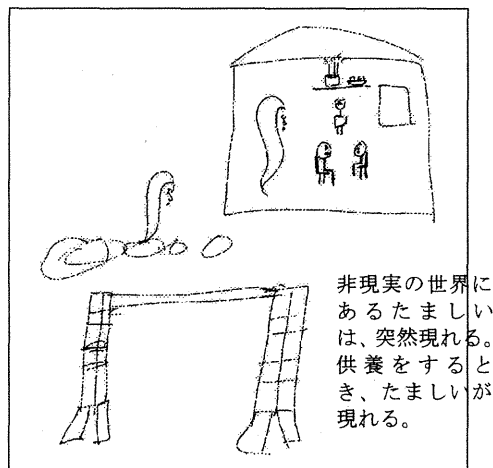 非現実の世界に
あるたましい
は、突然現れる。
供養をすると
き、たましいが
現れる。